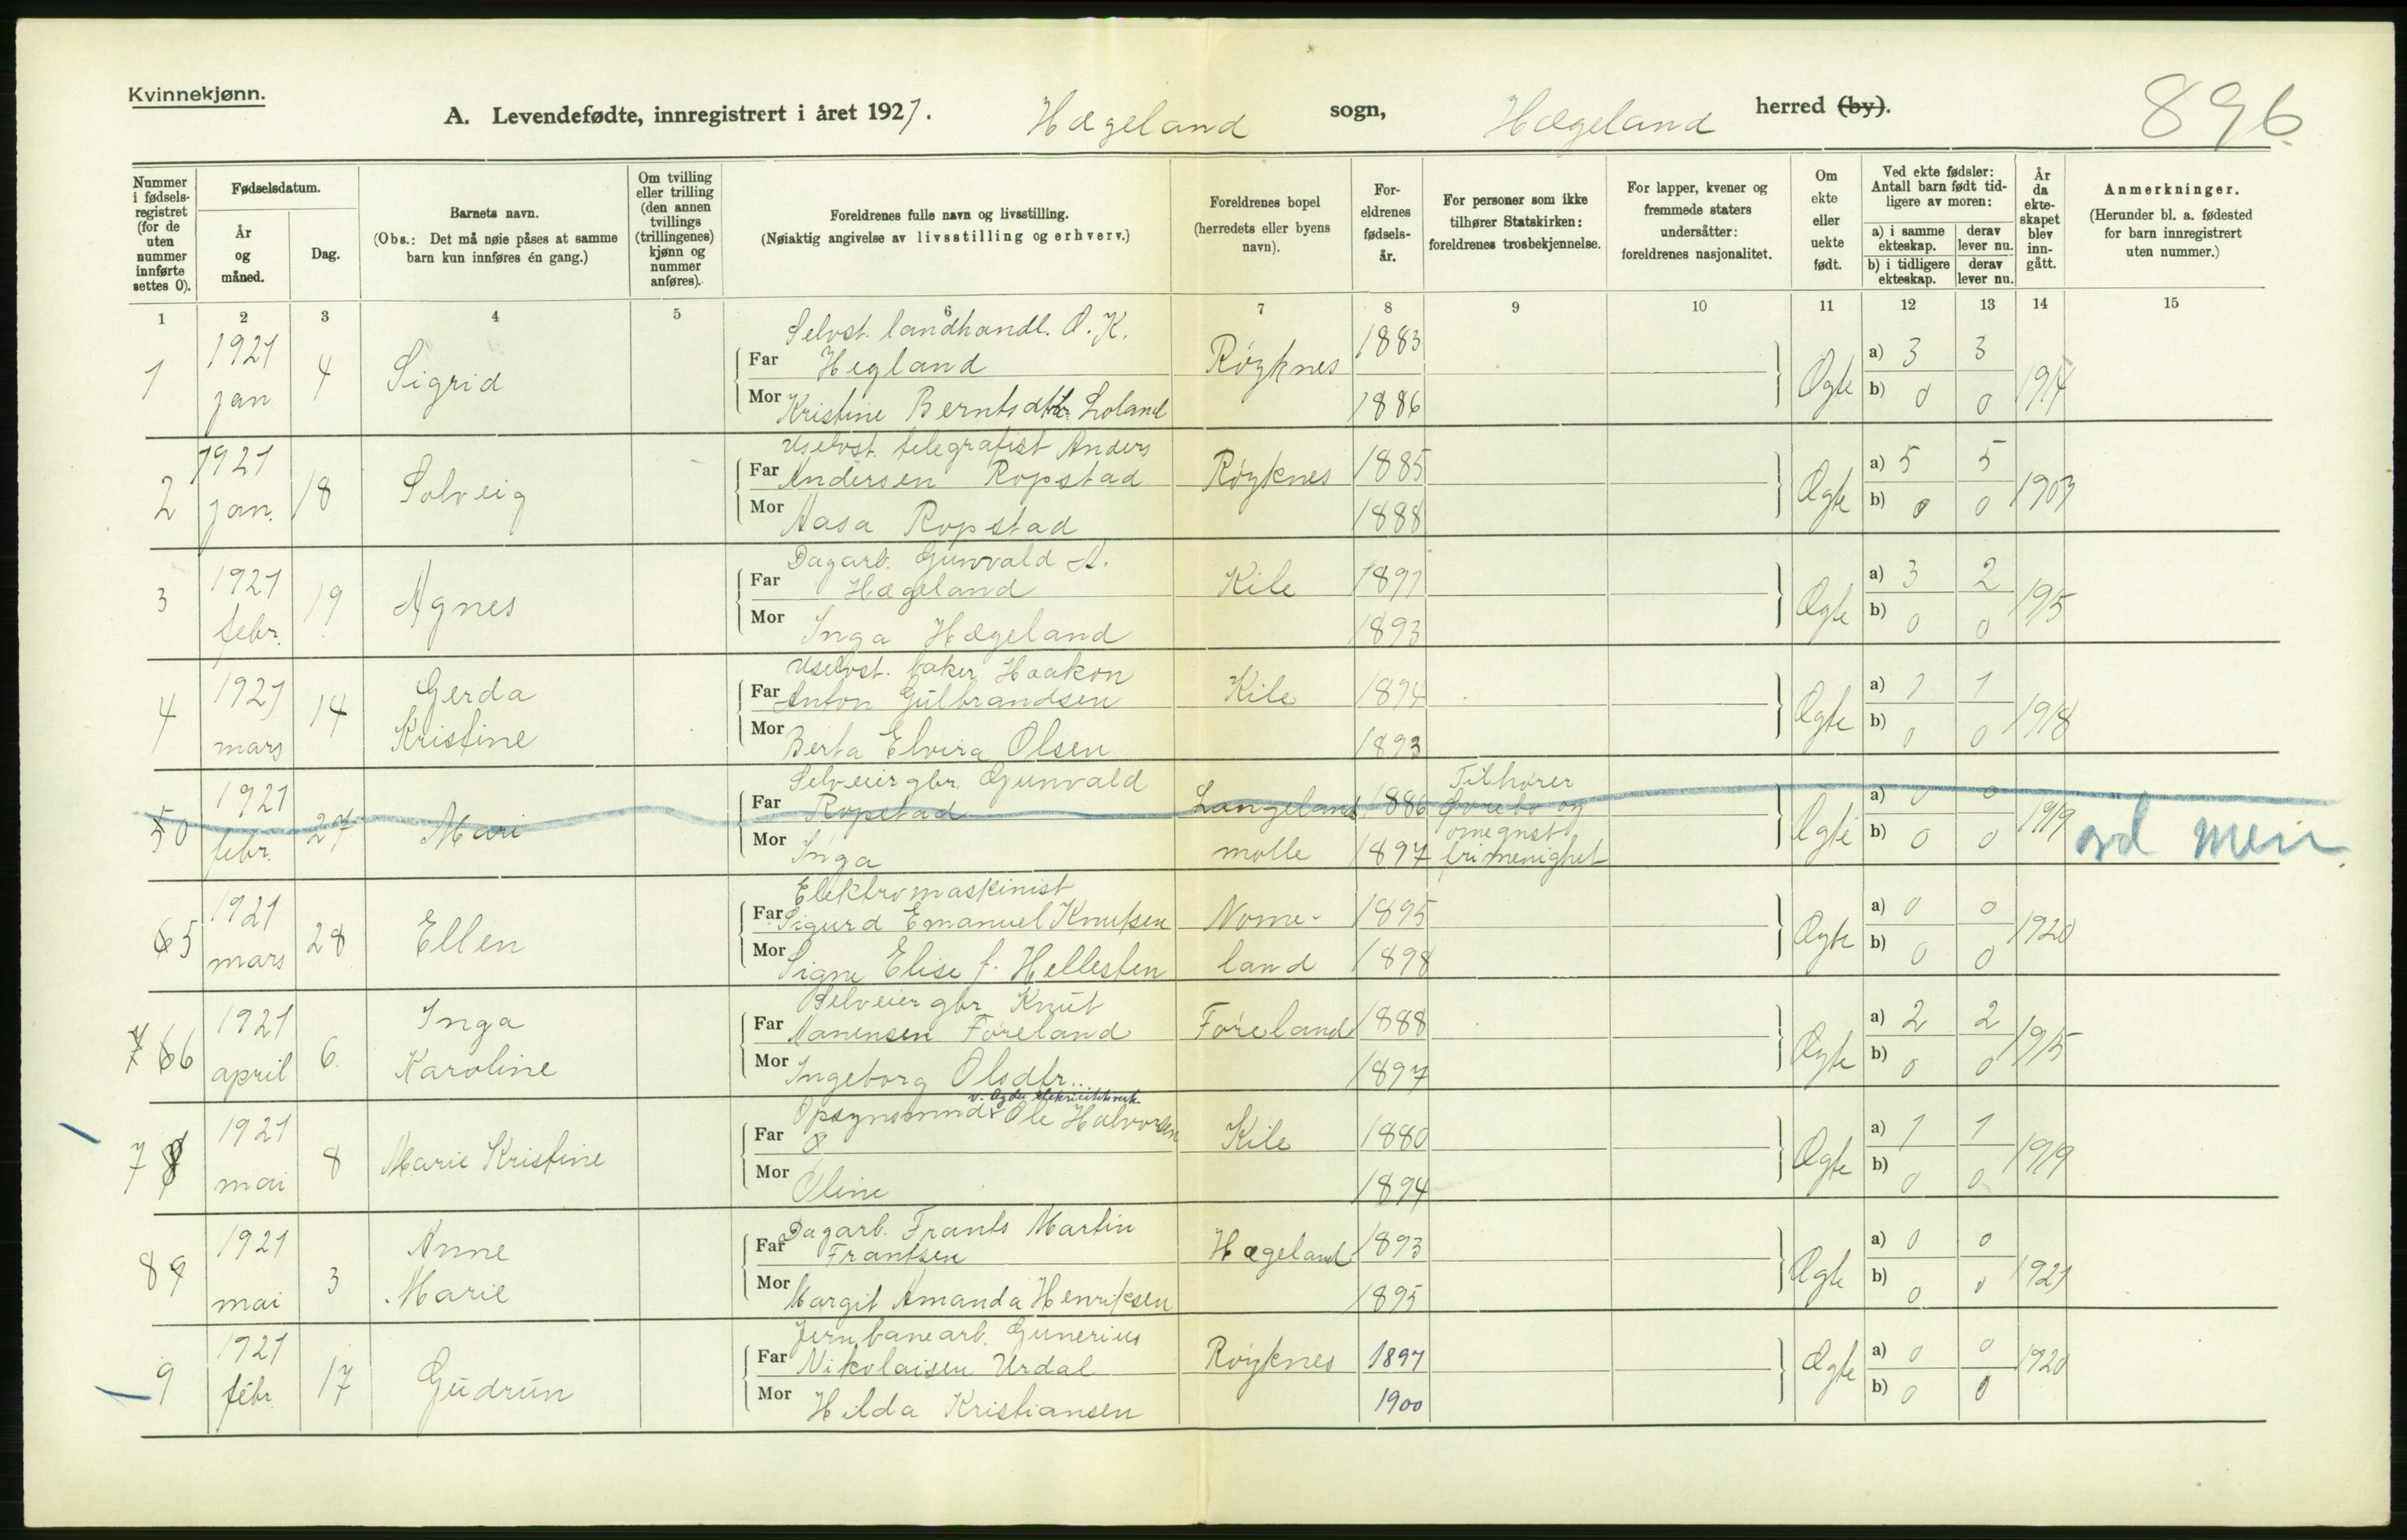 Kvinnekjønn.
A. Levendefødte, innregistrert i året 1921. Hægeland sogn, Hægeland herred (by).
896
Nummer i fødselsregistret (for de uten nummer innførte settes 0).
Fødselsdatum.
År og måned.
Dag.
Barnets navn.
(Obs.: Det må nøie påses at samme barn kun innføres én gang.)
Om tvilling eller trilling (den annen tvillings (trillingenes) kjønn og nummer anføres).
Foreldrenes fulle navn og livsstilling.
(Nøiaktig angivelse av livsstilling og erhverv.)
Foreldrenes bopel (herredets eller byens navn).
Foreldrenes fødselsår.
For personer som ikke tilhører Statskirken: foreldrenes trosbekjennelse.
For lapper, kvener og fremmede staters undersåtter: foreldrenes nasjonalitet.
Om ekte eller uekte født.
Ved ekte fødsler: Antall barn født tidligere av moren:
a) i samme ekteskap. derav lever nu.
b) i tidligere ekteskap. derav lever nu.
År da ekteskapet blev inngått.
Anmerkninger.
(Herunder bl. a. fødested for barn innregistrert uten nummer.)
1 2 3 4 5 6 7 8 9 10 11 12 13 14 15
1 1921 jan 4 Sigrid
Selvst. landhandl. O. K.
Far Hegland Røyknes 1883
Mor Kristine Berntsdtr. Loland 1886
Ægte a) 3 3 b) 0 0 1914
2 1921 jan. 18 Solveig
Uselvst. telegrafist Anders
Far Andersen Ropstad Røyknes 1885
Mor Aasa Ropstad 1888
Ægte a) 5 5 b) 0 0 1907
3 1921 febr. 19 Agnes
Dagarb. Gunvald A.
Far Hægeland Kile 1891
Mor Inga Hægeland 1893
Ægte a) 3 2 b) 0 0 1915
4 1921 mars 14 Gerda Kristine
Uselvst. baker Haakon
Far Anton Gulbrandsen Kile 1894
Mor Berta Elvira Olsen 1893
Ægte a) 1 1 b) 0 0 1918
5 0 1921 febr. 27 Mari
Selveier gbr. Gunvald
Far Ropstad Langeland 1886
Mor Inga molle 1897
Tilhører Øvrebø og omegnst frimenighet
Ægte a) 0 0 b) 0 0 1919
6 5 1921 mars 28 Ellen
Elektromaskinist
Far Sigurd Emanuel Knutsen Nome- 1895
Mor Signe Elise f. Hellesten land 1898
Ægte a) 0 0 b) 0 0 1920
7 6 6 1921 april 6. Inga Karoline
Selveier gbr. Knut
Far Manensen Føreland Føreland 1888
Mor Ingeborg Olsdtr. 1897
Ægte a) 2 2 b) 0 0 1915
7 8 1921 mai 8 Marie Kristine
v. Agder elektricitetsverk
Opsynsmnd Ole Halvorsen
Far Kile 1880
Mor Oline 1894
Ægte a) 1 1 b) 0 0 1919
8 9 1921 mai 3 Anne Marie
Dagarb. Frants Martin
Far Frantsen Hægeland 1893
Mor Margit Amanda Henriksen 1895
Ægte a) 0 0 b) 0 0 1921
9 1921 febr. 17 Gudrun
Jernbanearb. Gunerius
Far Nikolaisen Urdal Røyknes 1897
Mor Hilda Kristiansen 1900
Ægte a) 0 0 b) 0 0 1920